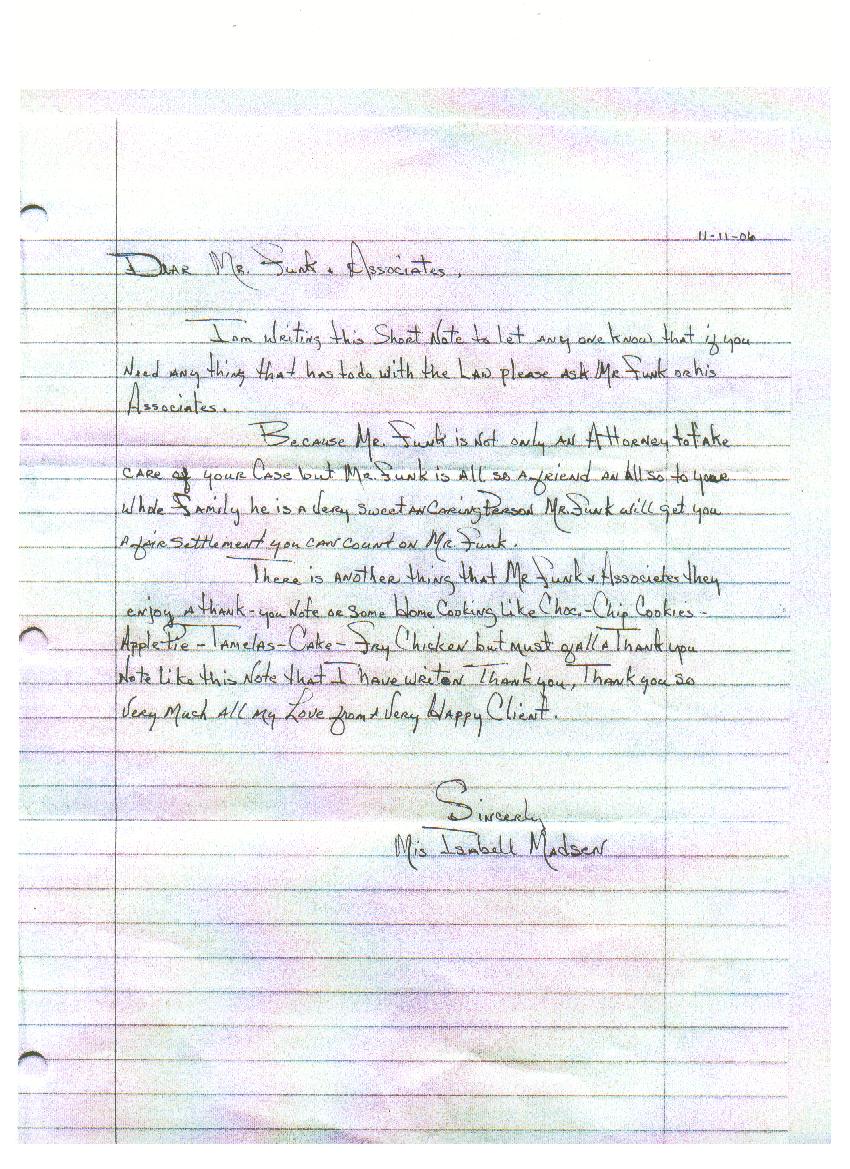 11-11-06
Dear Mr. Funk & Associates,
I am writing this Short Note to let any one know that if you
Need any thing that has to do with the Law please ask Mr Funk or his
Associates.
Because Mr. Funk is Not only an Attorney to take
care of your Case but Mr. Funk is all so a friend an all so to your
whole Family he is a very sweet an Caring Person Mr. Funk will get you
a fair settlement you can count on Mr. Funk.
There is another thing that Mr Funk & Associates they
enjoy a thank-you Note or some Home Cooking Like Choc.-Chip Cookies-
Apple Pie-Tamelas-Cake-Fry Chicken but must of all a Thank you
Note Like this Note that I have writen Thank you, Thank you so
Very Much all my Love from a Very Happy Client.
Sincerly
Mis Isabell Madsen